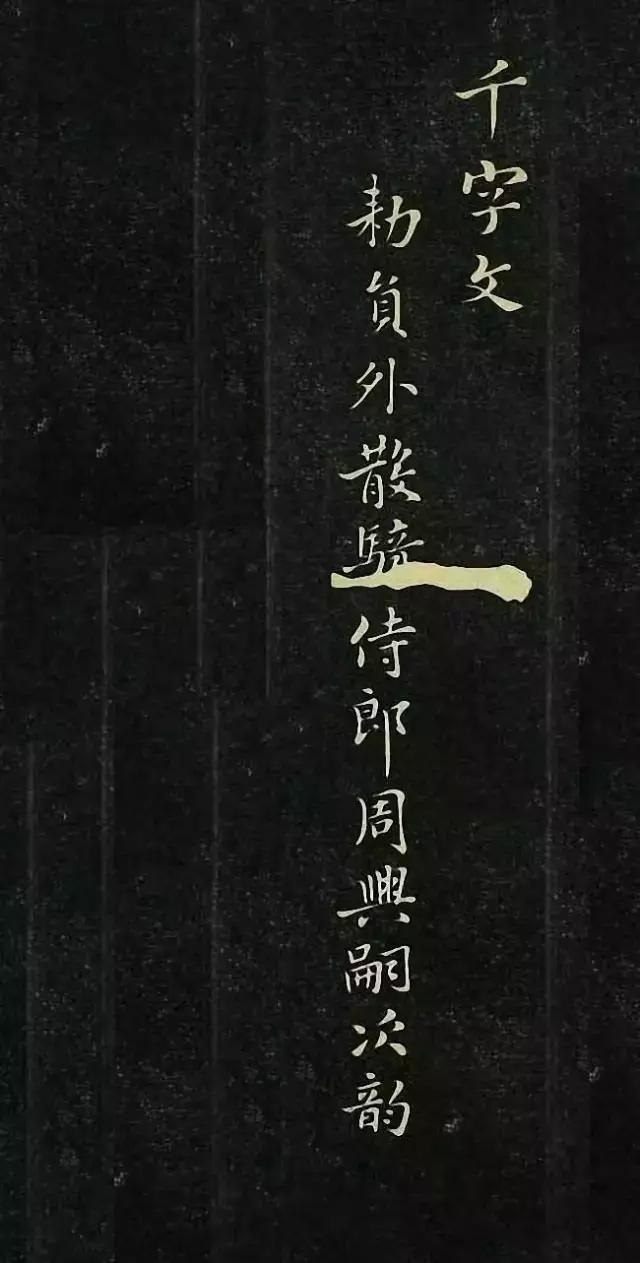 千字文
勑員外散騎侍郎周興嗣次韵